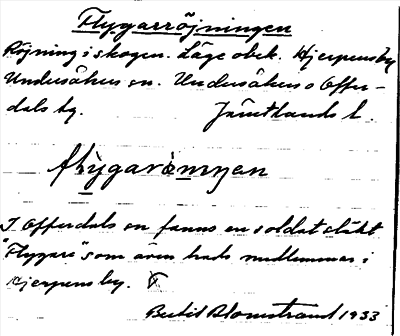 Flygarröjningen
Röjning i skogen. Läge obek. Hjerpens by
Undersåkers sn. Undersåkers o Offer-
dals tg. Jämtlands l.
flygarömyen
I Offerdals sn fanns en soldatsläkt
"Flygare" som även hade medlemmar i
Hjerpens by.
Bertil Blomstrand 1933